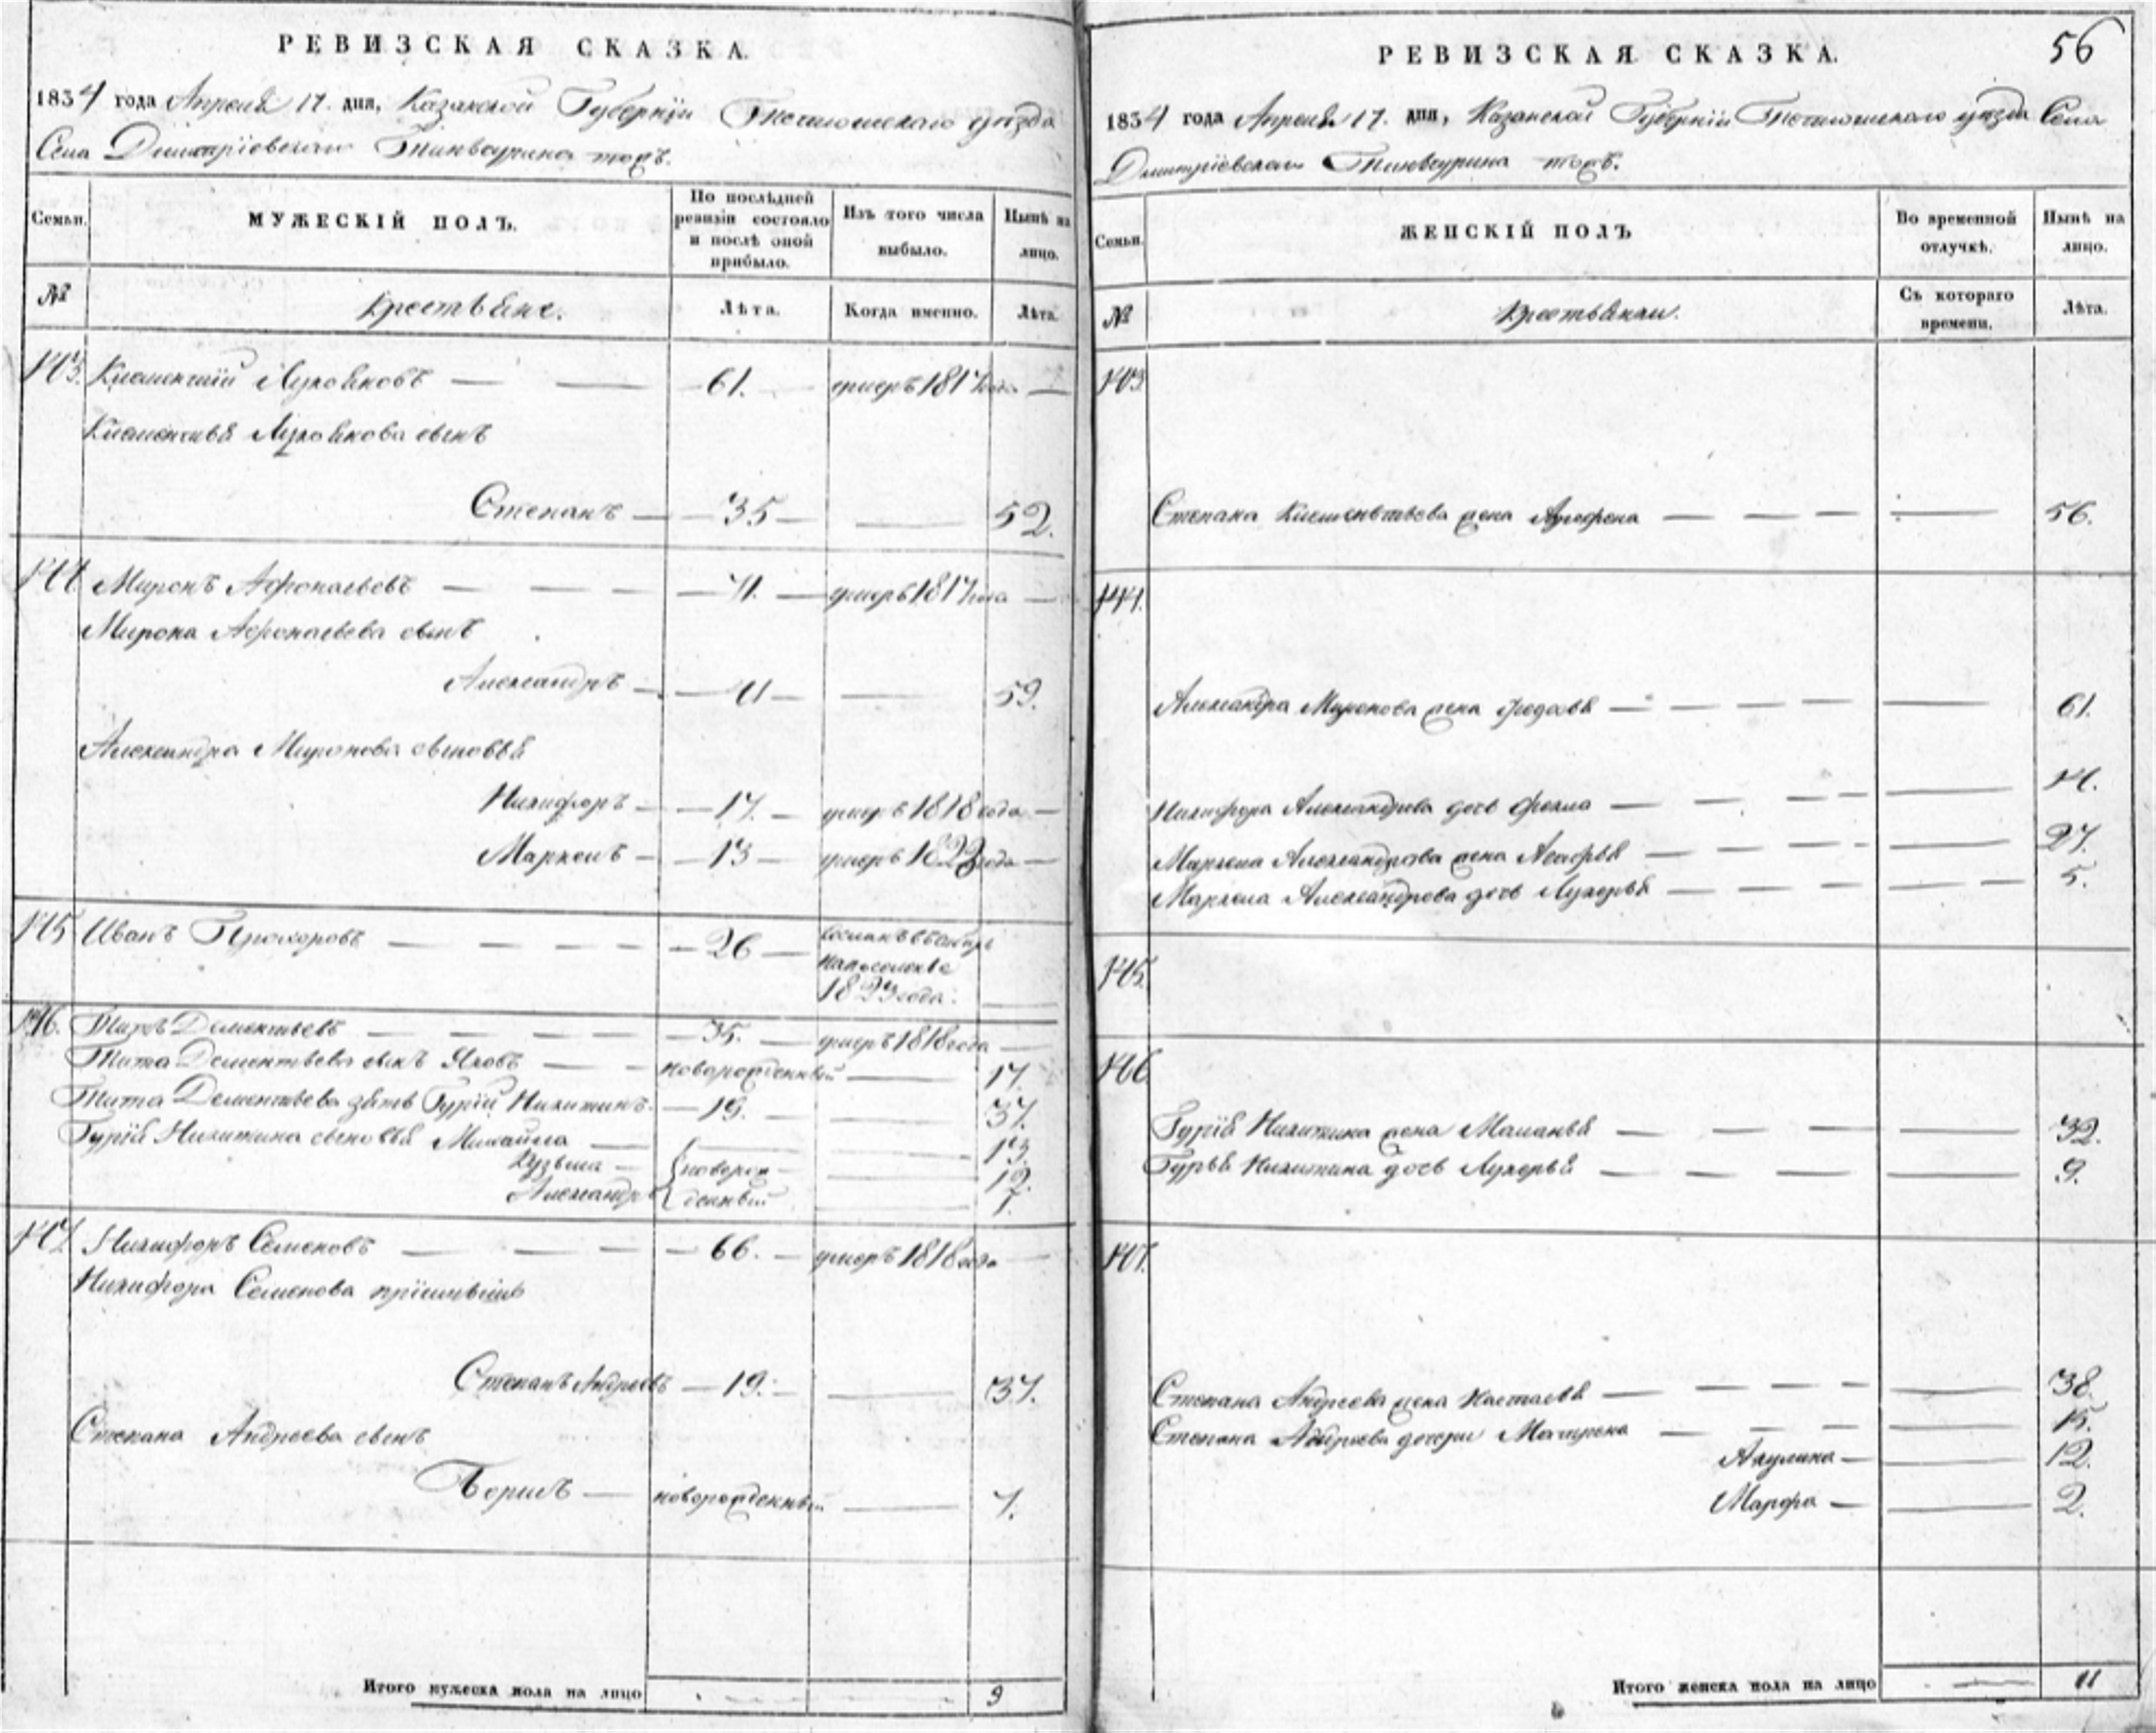 РЕВИЗСКАЯ СКАЗКА.
1834 года Апреля 17. дня, Казанской Губернiи Тетюшскаго уѣзда
Села Димитрiевскаго тожъ.
Семьи.
МУЖЕСКIЙ ПОЛЪ.
По послѣдней ревизiи состояло и послѣ оной прибыло.
Изъ того числа выбыло.
Нынѣ на лицо.
№
Крестьяне.
Лѣта.
Когда именно.
Лѣта.
Климентiй — — 61. умеръ 1817 года —
сынъ
Степанъ — 35 — 52.
Миронъ — — — 41. — умеръ 1817 года —
Мирона сынъ
Александръ — 41 — 59.
Александра Миронова сыновья
Никифоръ — 17. — умеръ 1818 года —
Маркелъ — 13 — умеръ года —
Иванъ Прохоровъ — — — 26 — въ Сибирь
на поселенiе
1823 года. —
Титъ Дементьевъ — — — 35. — умеръ 1818 года —
Тита Дементьева сынъ Яковъ — — новорожденный — 17.
Тита Дементьева зять Гурiй Никитинъ — 19. — 37.
Гурiя Никитина сыновья Михайла — — 13.
Кузьма — новорож — 12.
Александръ денный — 1.
Никифоръ Семеновъ — — — 66. — умеръ 1818 года —
Никифора Семенова прiемышъ
Степанъ Андреевъ — 19. — 37.
Степана Андреева сынъ
Борисъ — новорожденный — 7.
Итого мужеска пола на лицо 9
56
РЕВИЗСКАЯ СКАЗКА.
1834 года Апреля 17. дня, Казанской Губернiи Тетюшскаго уѣзда Села
Димитрiевскаго тожъ.
Семьи.
ЖЕНСКIЙ ПОЛЪ
Во временной отлучкѣ.
Нынѣ на лицо.
№
Крестьянки.
Съ котораго времени.
Лѣта.
Степана жена — — — — 56.
Александра Миронова жена — — — — — 61.
Никифора Александрова дочь Фекла — — — — — 14.
Маркела Александрова жена Агафья — — — — — 27.
Маркела Александрова дочь Лукерья — — — — 5.
Гурiя Никитина жена Маланья — — — — 32.
Гурья Никитина дочь Лукерья — — — — 9.
Степана Андреева жена Настасья — — — — — 38.
Степана Андреева дочери Матрена — — — — — 15.
Акулина — — 12.
Марфа — — 2.
Итого женска пола на лицо — 11